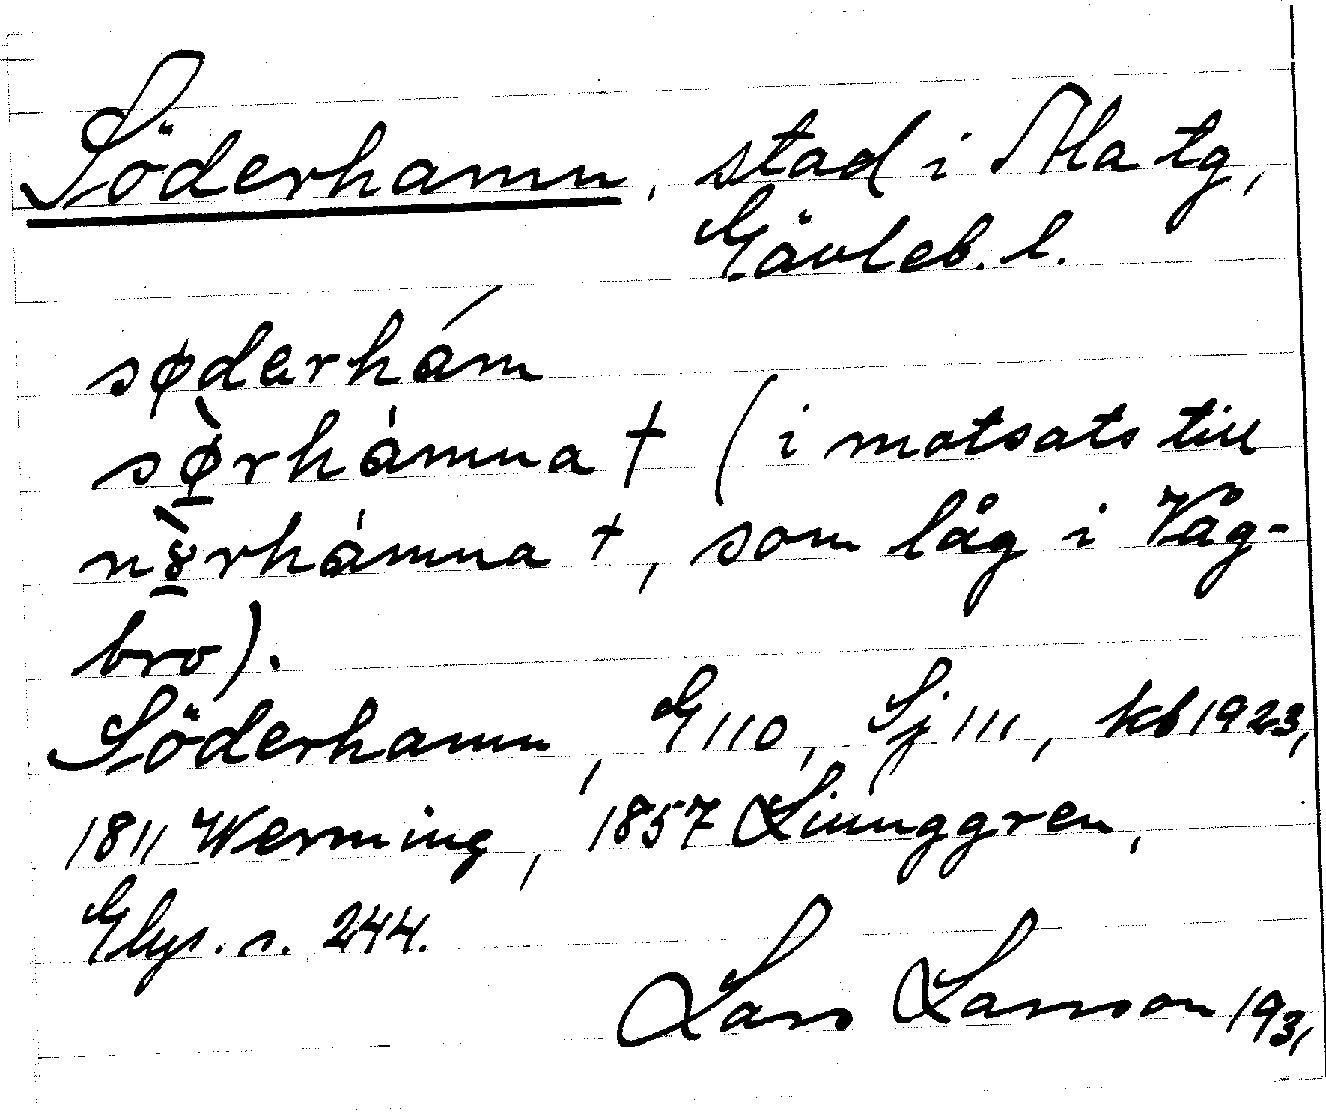 Söderhamn, stad i Ala tg,
Gävleb. l.
søderhám
sø̀rhámna † (i motsats till
nɤ̀rhámna †, som låg i Våg-
bro).
Söderhamn, G 110, Sj 111, kb 1923,
1811 Werming, 1857 Liunggren,
Glys. s. 244.
Lars Larsson 1931